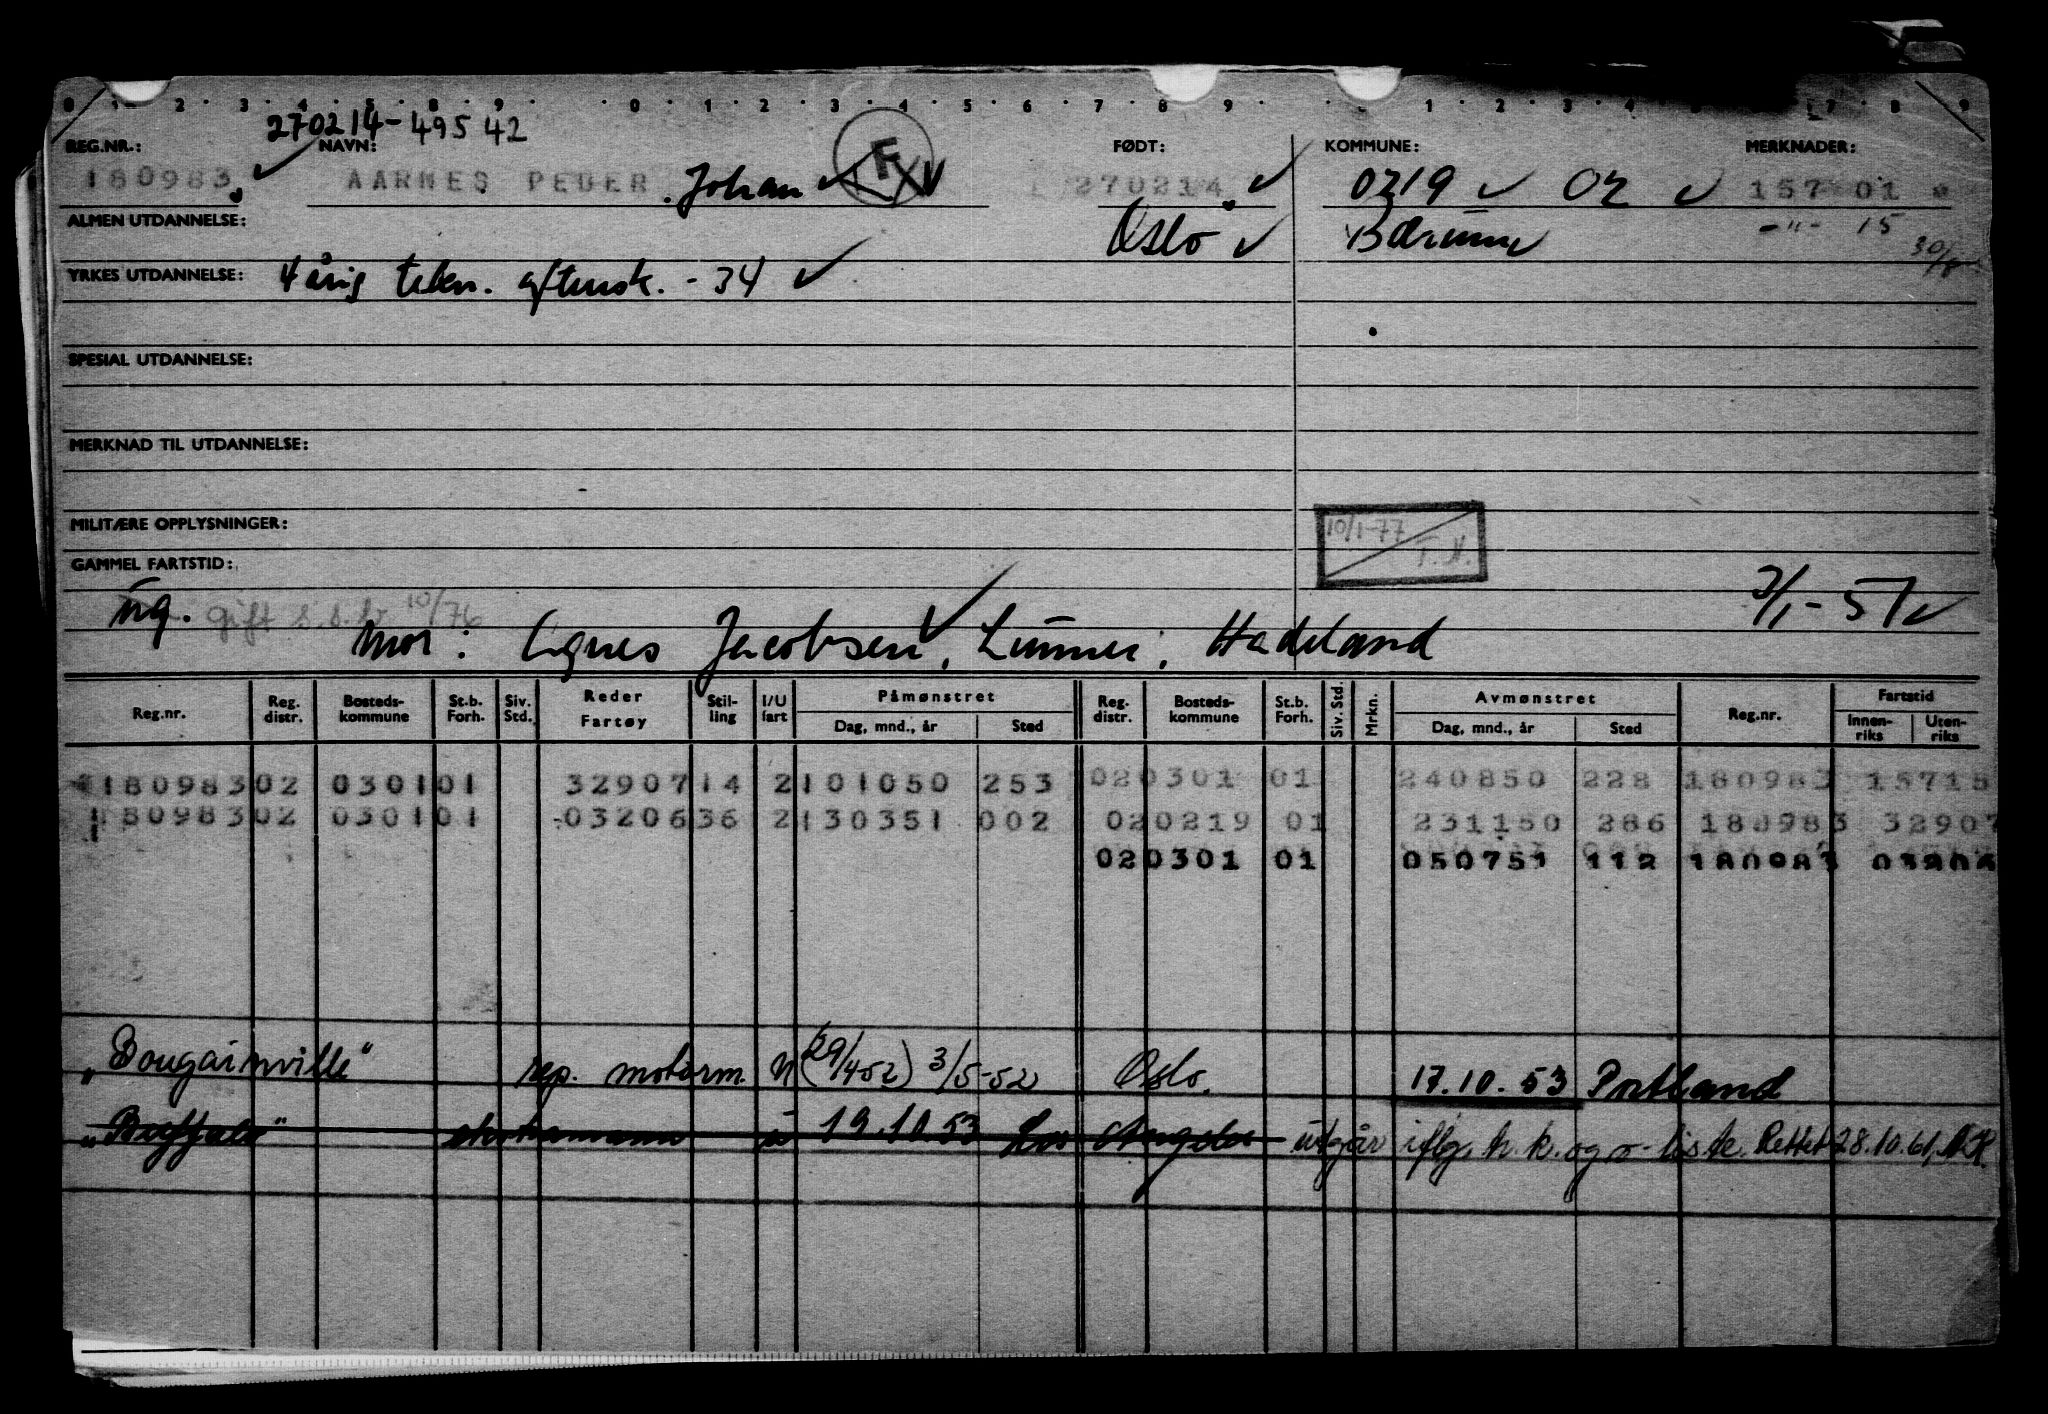 0 1 2 3 4 5 8 9 0 1 2 3 4 5 6 7 8 9 1 2 3 4 7 8 9
270214-49542
REG.NR.: NAVN: F FØDT: KOMMUNE: MERKNADER:
180983 AARNES PEDER Johan 270214 0219 02 157 01
ALMEN UTDANNELSE: Oslo Bærum -"- 15
YRKES UTDANNELSE: 4 årig tekn. aftensk. - 34
SPESIAL UTDANNELSE:
MERKNAD TIL UTDANNELSE:
MILITÆRE OPPLYSNINGER:
10/1-77
T.N.
GAMMEL FARTSTID:
ug. gift s.s.br 10/76
Mor: Agnes Jacobsen, Lunner, Hadeland
3/1-51
Reg.nr. Reg. distr. Bosteds-kommune St.b. Forh. Siv. Std. Reder Fartøy Stil-ling I/U fart Påmønstret Dag, mnd., år Sted Reg. distr. Bosteds-kommune St.b. Forh. Siv. Std. Mrkn. Avmønstret Dag, mnd., år Sted Reg.nr. Fartstid Innen-riks Uten-riks
180983 02 0301 01 32907 14 2 101050 253 02 0301 01 240850 228 180983 15718
180983 02 0301 01 03206 36 2 130351 002 02 0219 01 231150 286 180983 32907
02 0301 01 050751 112 180983 03206
"Bougainville" rep. motorm. U (29/4-52) 3/5-52 Oslo. 17.10.53 Portland
"Buffalo" u 19.10.53 Los Angelos utgår iflg. h.k. og o-liste. Rettet 28.10.61,